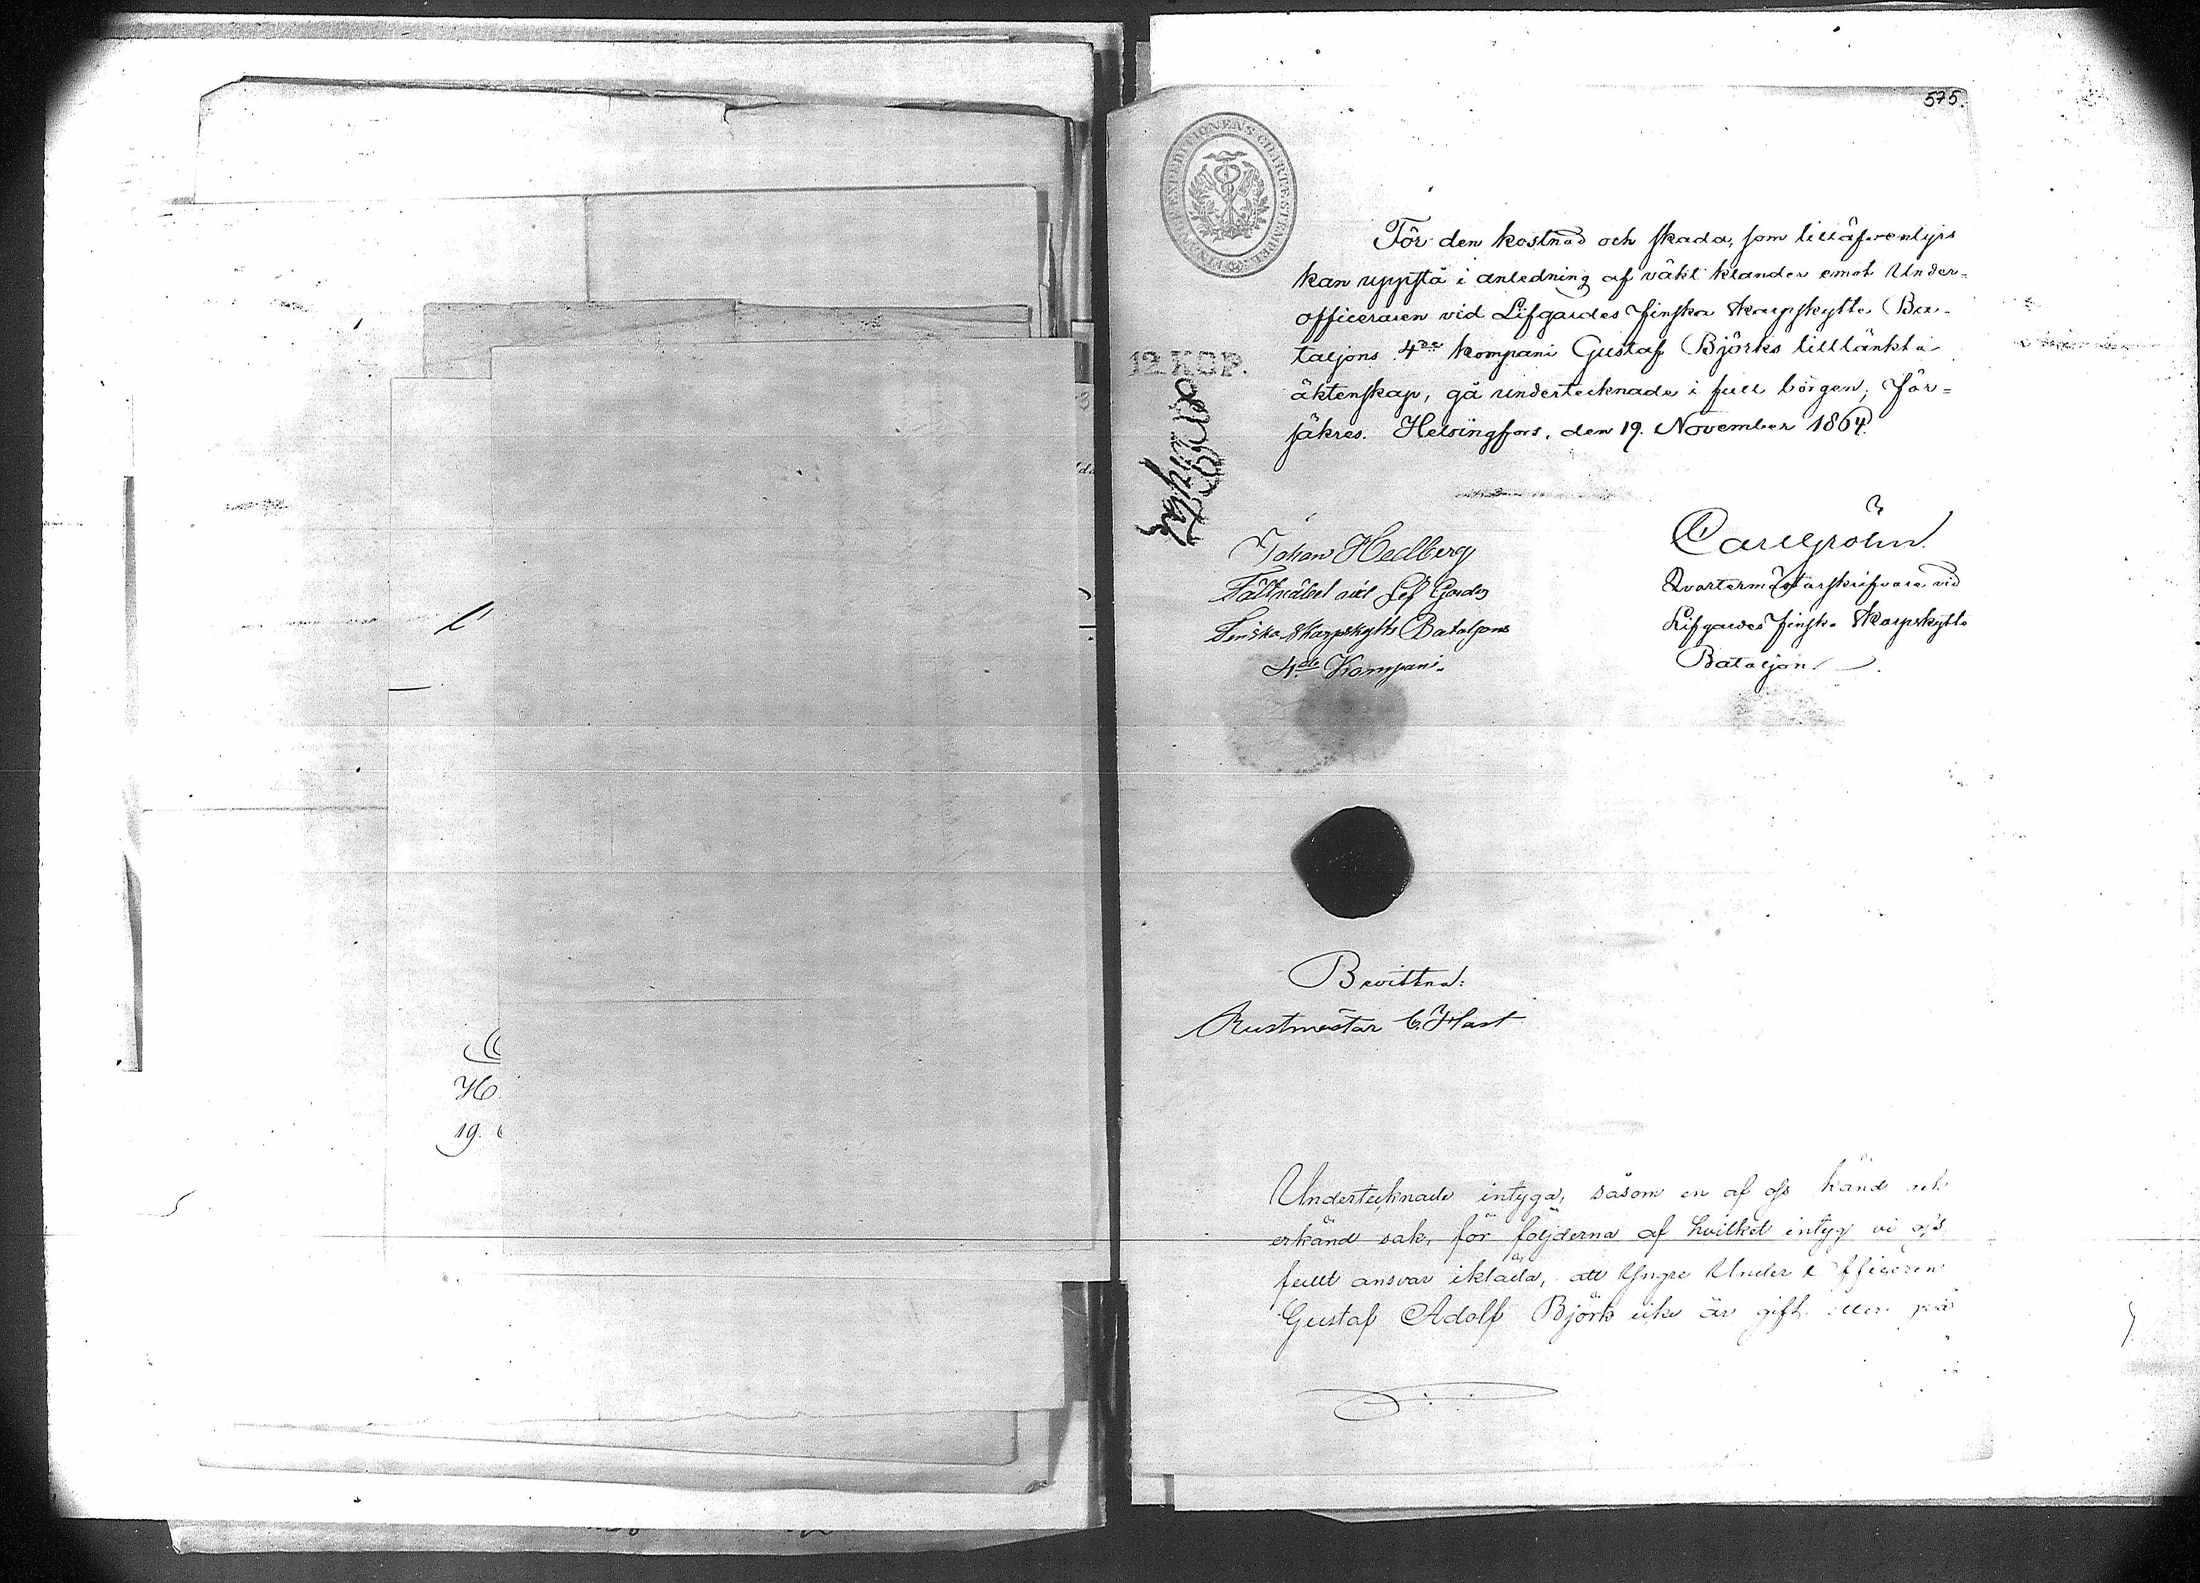 575.
För den kostnad och skada, som tilläfventyrs
kan uppstå i anledning af väkt klander emot Under-
officeraren vid Lifgardes finska Skarpskytte Ba-
taljons 4de Kompani Gustaf Björks tilltänkta
äktenskap, gå undertecknade i full borgen, För-
säkres. Helsingfors, den 19. November 1864.
12 KOP.
Johan Hedberg
Fältväbel vid Lif Gardes
Finska Skarpskytte Bataljons
4de Kompani.
Carl Gröhn
Qvartermästarskrifvare vid
Lifgardes finska Skarpskytte
Bataljon.
Bevittna:
Rustmästar C. Hast
H
19.
Undertecknade intyga, såsom en af oss känd och
erkänd sak, för följderna af hvilket intyg vi oss
fullt ansvar ikläda, att Yngre Under Officeren
Gustaf Adolf Björk icke är gift eller på